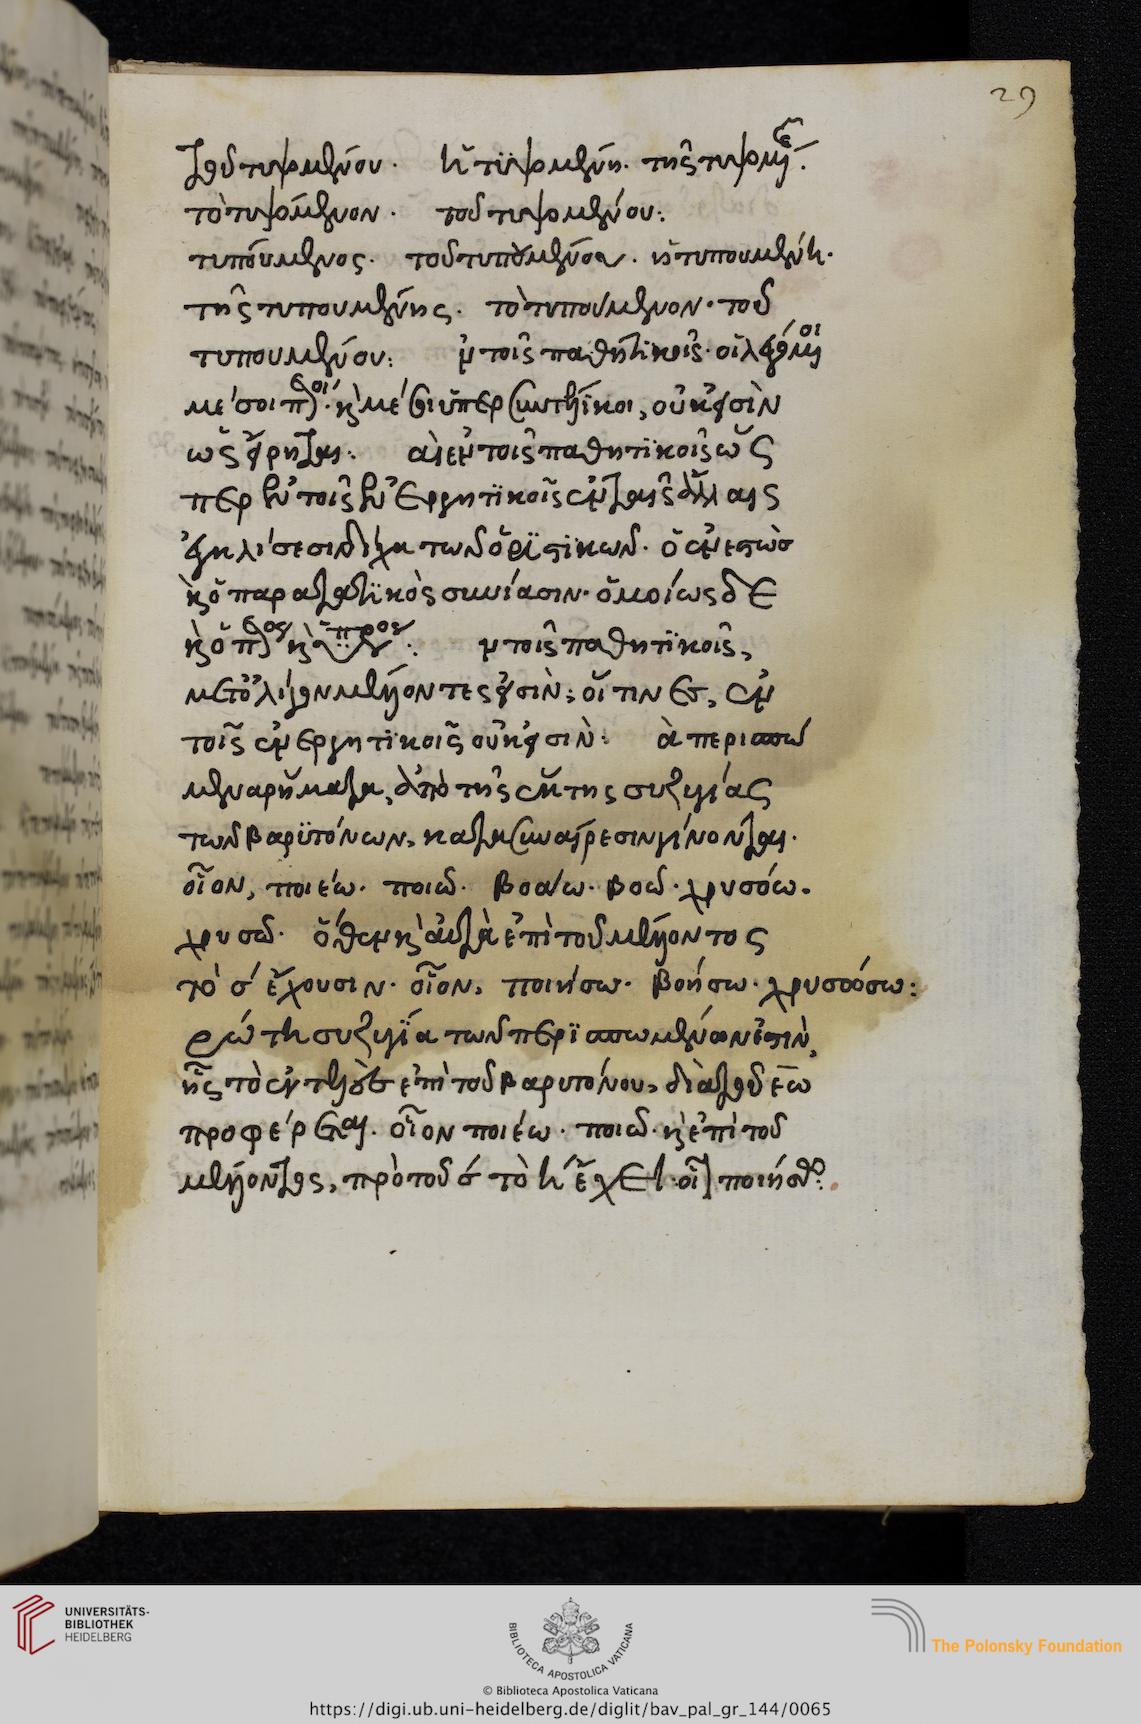 29
τοῦ τυψομένου. ἡ τυψομένη. τῆς τυψομένης.
τὸ τυψόμενον. τοῦ τυψομένου:
τυπούμενος. τοῦ τυπουμένου. ἡ τυπουμένη.
τῆς τυπουμένης. τὸ τυπούμενον. τοῦ
τυπουμένου: ἐν τοῖς παθητικοῖς. οἱ λεγόμενοι
μέσοι καὶ μέσοι ὑπερσυντελικοι, οὐκ εἰσὶν
ὡς εἴρηται: αἱ ἐν τοῖς παθητικοῖς ὥς
περ ἐν τοῖς ἐνεργητικοῖς ἐν ταῖς ἄλλαις
ἐγκλίσεσι δίχα τῶν ὁριστικῶν. ὁ ἐνεστὼσ
καὶ ὁ παρατατικὸς συνίασιν. ὁμοίως δὲ
καὶ ὁ καὶ ἐν τοῖς παθητικοῖς,
μετ' ὀλίγον μέλλοντες εἰσὶν: οἵτινες, ἐν
τοῖς ἐνεργητικοῖς οὐκ εἰσὶν: ὰ περισπώ
μενα ῥήματα, ἀπὸ τῆς ἕκτης συζυγίας
τῶν βαρυτόνων, κατὰ συναίρεσιν γίνονται.
οἷον, ποιέω. ποιῶ. βοάω. βοῶ. χρυσόω.
χρυσῶ. ὅθεν καὶ αὐτὰ ἐπὶ τοῦ μέλλοντος
τὸ σ ἔχουσιν. οἷον, ποιήσω. βοήσω. χρυσώσω:
ρώτη συζυγία τῶν περισπωμένων ἐστὶν,
ἧς τὸ ἐπὶ τοῦ βαρυτόνου, διὰ τοῦ εω
προφέρεται. οἷον ποιέω. ποιῶ. καὶ ἐπὶ τοῦ
μέλλοντος, πρὸ τοῦ σ τὸ η ἔχει. οἷον ποιήσω:
UNIVERSITÄTS-
BIBLIOTHEK
HEIDELBERG
BIBLIOTECA APOSTOLICA VATICANA
The Polonsky Foundation
© Biblioteca Apostolica Vaticana
https://digi.ub.uni-heidelberg.de/diglit/bav_pal_gr_144/0065